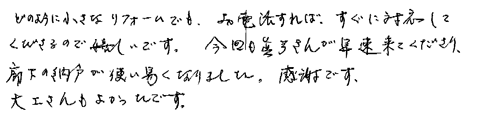 どのように小さなリフォームでも、お電話すれば、すぐに対応して
くださるので嬉しいです。今回も さんが早速来てくださり、
廊下の納戸が使い易くなりました。感謝です。
大工さんもよかったです。